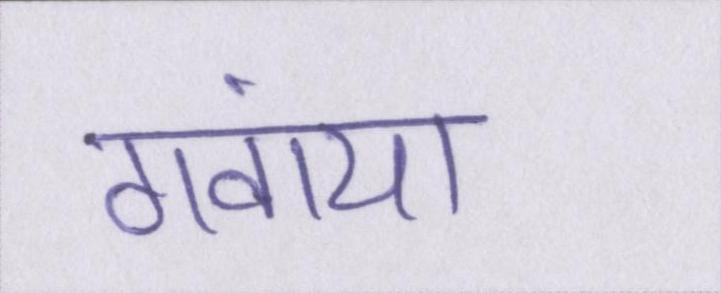 गवांया